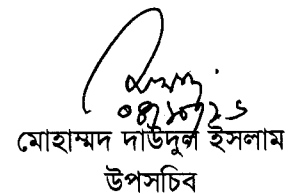 মোহাম্মদ দাউদুল ইসলাম
উপসচিব